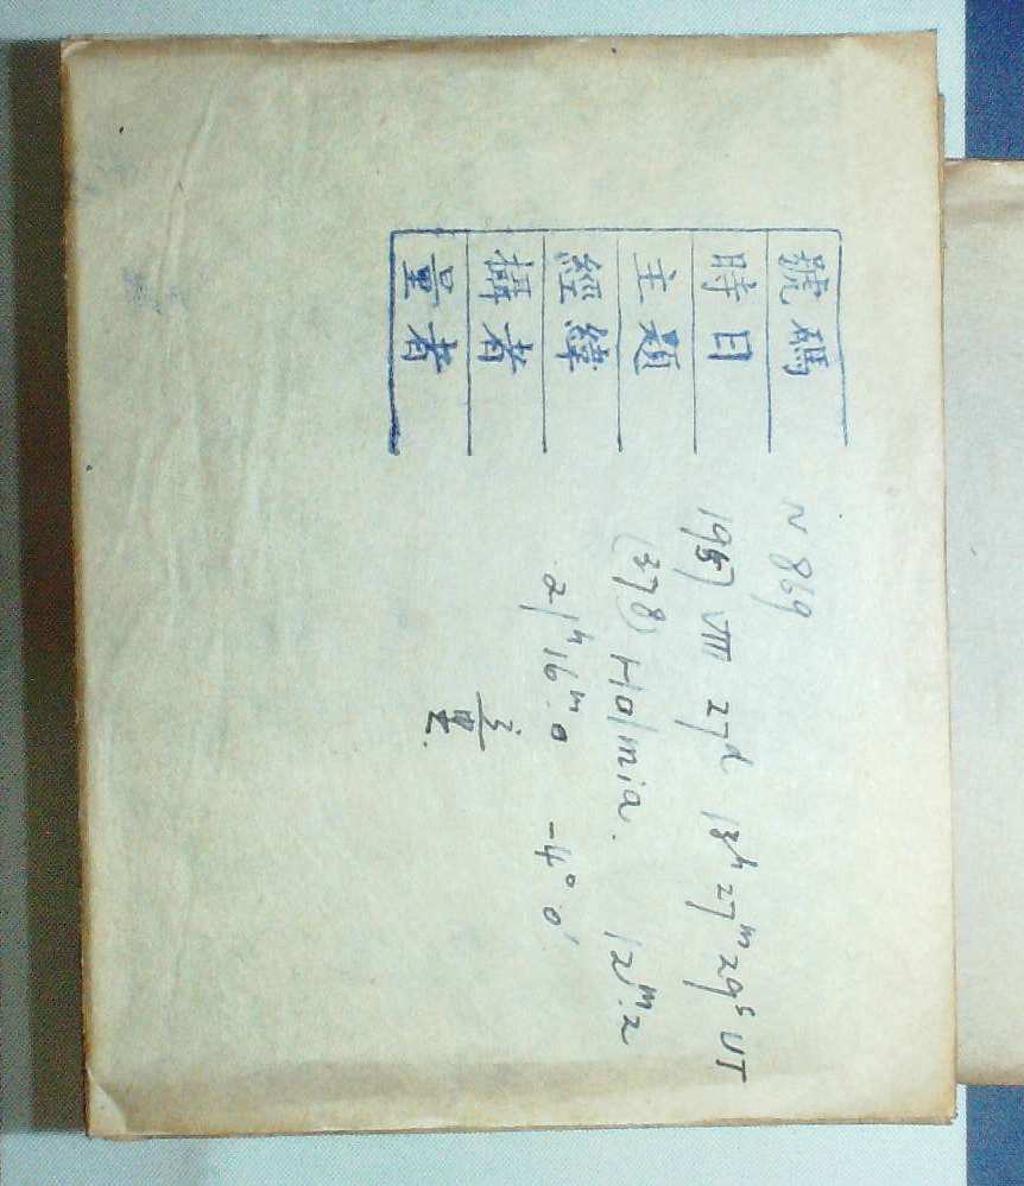 號碼 N 869
時日 1957 VIII 27d 13h 27m 29s UT
主題 (378) Holmia. 12m.2
經緯 21h16m.0 -4°.0'
攝者
量者